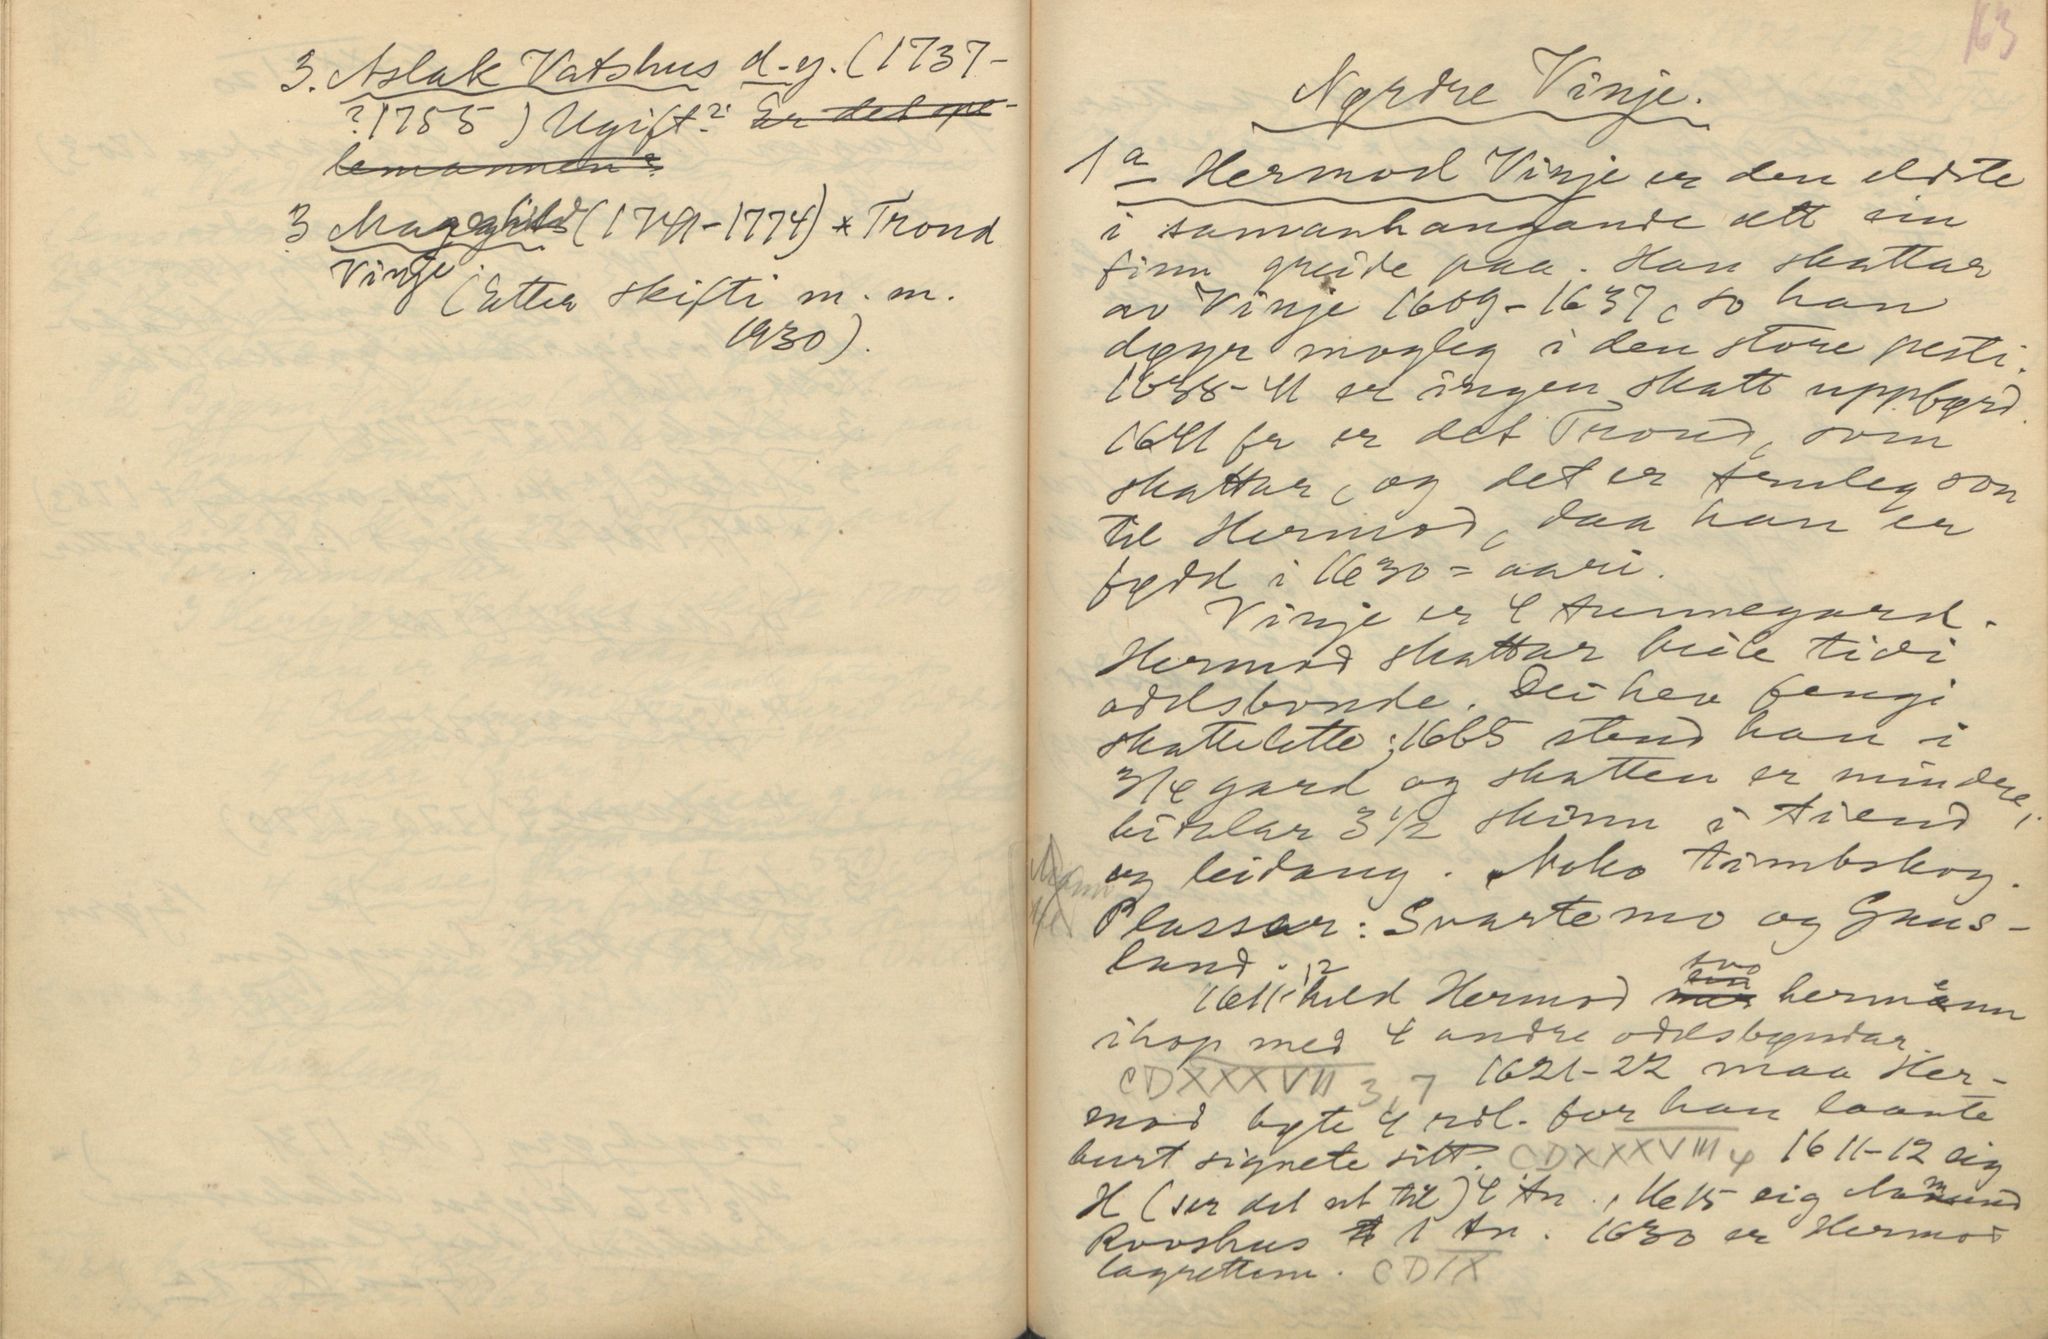 3. Aslak Vatshus d.y. (1737-
?1755) Ugift? Er det spe-
lemannen?
3 Margghild (1741-1774) * Trond
Vinje.
(Etter skifti m.m.
1930).
163
Nørdre Vinje.
1 a Hermod Vinje er den eldste
i samanhangande ætt ein
finn greide paa. Han skattar
av Vinje 1609-1637, so han
døyr mogleg i den store pesti.
1638-41 er ingen skatt uppbørd.
1641 fr er det Trond, som
skattar, og det er truleg son
til Hermod, daa han er
fødd i 1630-aari.
Vinje er 4 tunnegard.
Hermod skattar heile tidi
odelsbonde. Dei hev fengi
skattelette; 1665 stend han i
3/4 gard og skatten er mindre,
bitalar 3 1/2 skinn i tiend
og leidang. Noko timbskog.
Plassar: Svartemo og Gaus-
land.
1611-12 held Hermod ein hermann
ihop med 4 andre odelsbøndar.
CDXXXVII 3,7 1621-22 maa Her-
mod bøte 4 rdl. for han laante
burt signete sitt. CDXXXVIII 4 1611-12 eig
H (ser det ut til) 4 tn., 1615 eig Aamund
Rooshus 1 tn. 1630 er Hermod
lagrettem. CDIX